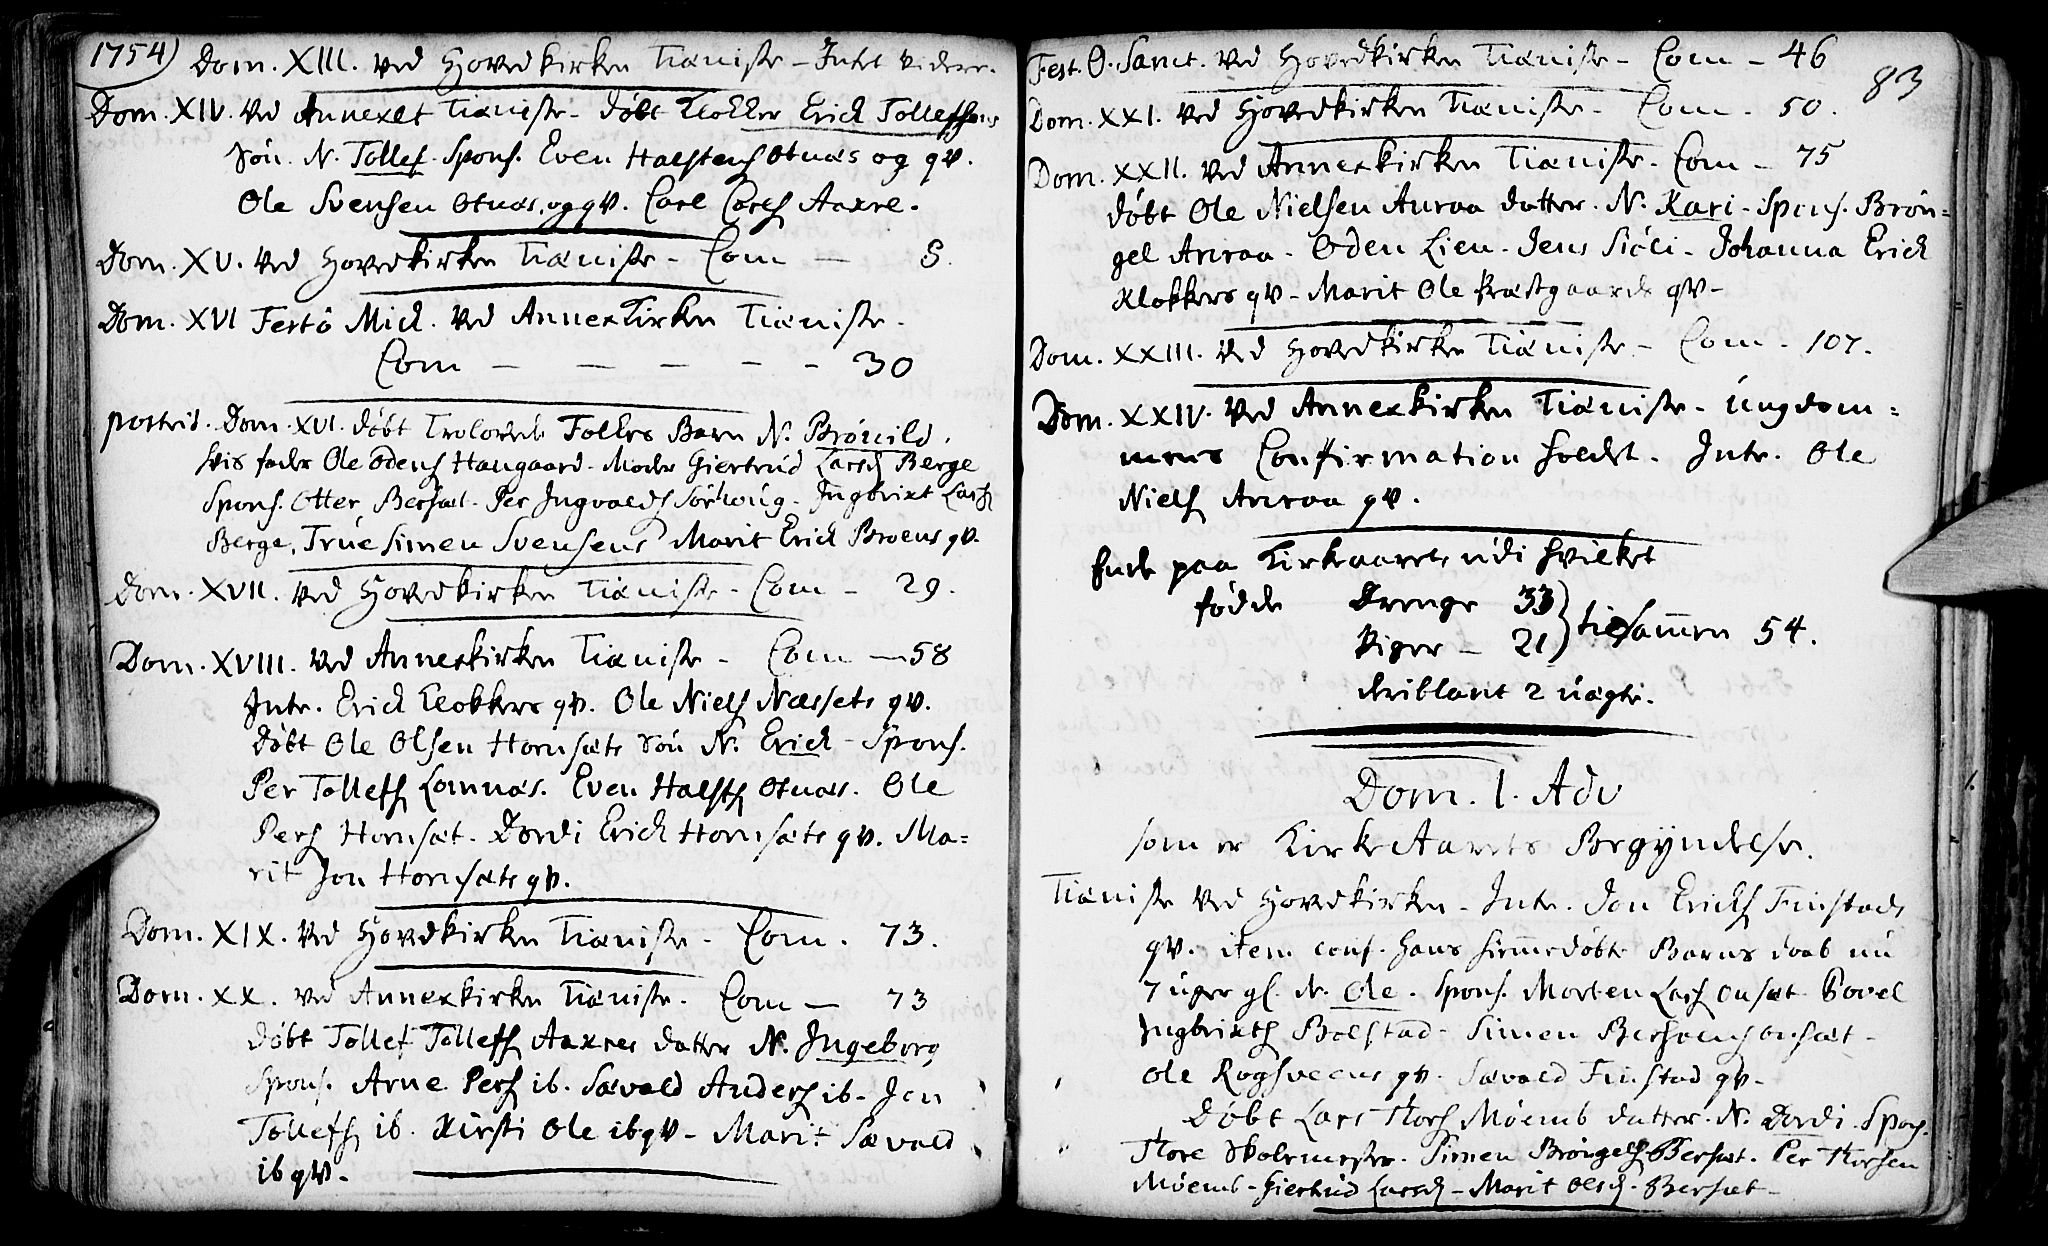 1754)
Dom. XIII. ved Hovedkirken Tieniste - Intet videre.
Dom. XIV. ved Annexet Tieniste - døbt Klokker Erich Tollefsens
Søn. N. Tollef. Spons. Even Halstens Otnæs og qv.
Ole Svensen Otnæs, og qv. Carl Carls Aaxre.
Dom. XV. ved Hovedkirken Tieniste - Com — 8.
Dom. XVI Festo Mich. ved Annexkirken Tieniste.
Com — — — - - 30
postrid. Dom. XVI. døbt Trolovede Folkes Barn N. Brønild.
hvis fader Ole Odens Haugaard. Moder Giertrud Larsd Berge
Spons. Otter Bersæt. Per Ingvalds Sørhoug. Ingbrixt Lars
Berge, True Simen Svensens Marit Erich Broens qv.
Dom. XVII. ved Hovedkirken Tieniste - Com - 29.
Dom. XVIII. ved Annexkirken Tieniste - Com — 58
Intr. Erich Klokkers qv. Ole Niels Næssets qv.
døbt Ole Olsen Hornsæts Søn N. Erich - Spons.
Per Tollefs Lomnæs. Even Halsts Otnæs. Ole
Pers Hornsæt. Dordi Erich Hornsæts qv. Ma-
rit Jon Hornsæts qv.
Dom. XIX. ved Hovedkirken Tieniste - Com. 73.
Dom. XX. ved Annexkirken Tieniste. Com — 73
døbt Tollef Tollefs Aaxres datter N. Ingeborg
Spons. Arne Pers ib. Sævald Anders ib. Jon
Tollefs ib. Kirsti Ole ib qv - Marit Sævald
ib qv.
83
Fest. O. Sanct. ved Hovedkirken Tieniste - Com - 46
Dom. XXI. ved Hovedkirken Tieniste - Com - 50.
Dom. XXII. ved Annexkirken Tieniste - Com - 75
døbt Ole Nielsen Anraa datter. N. Kari - Spons. Brøn-
gel Anraa - Oden Lien - Jens Siøli - Johanna Erich
Klokkers qv - Marit Ole Præstgaards qv -
Dom. XXIII. ved Hovedkirken Tieniste - Com - 107.
Dom. XXIV. ved Annexkirken Tieniste - Ungdom-
mens Confirmation holdet. Intr. Ole
Niels Anraa qv.
Ende paa Kirkeaaret, udi hvilket
fødde Drenge 33
Piger - 21 } tilsamen 54.
deriblant 2 uægte.
Dom. 1. Adv
som er Kirke Aarets Begyndelse.
Tieniste ved Hovedkirken - Intr. Jon Erichs Finstads
qv. item conf. hans hiemedøbte Barns daab nu
7 uger gl. N. Ole. Spons. Morten Lars Onsæt Povel
Ingbrixts Bolstad - Simen Bersvens Onsæt -
Ole Rogsveens qv. Sævald Finstad qv -
Døbt Lars Thors Møemb datter. N. Dordi. Spons.
Thore Skolemester. Simen Brøngels Bersæt. Per Thorsen
Møemb - Giertrud Larsd - Marit Olsd. Bersæt -